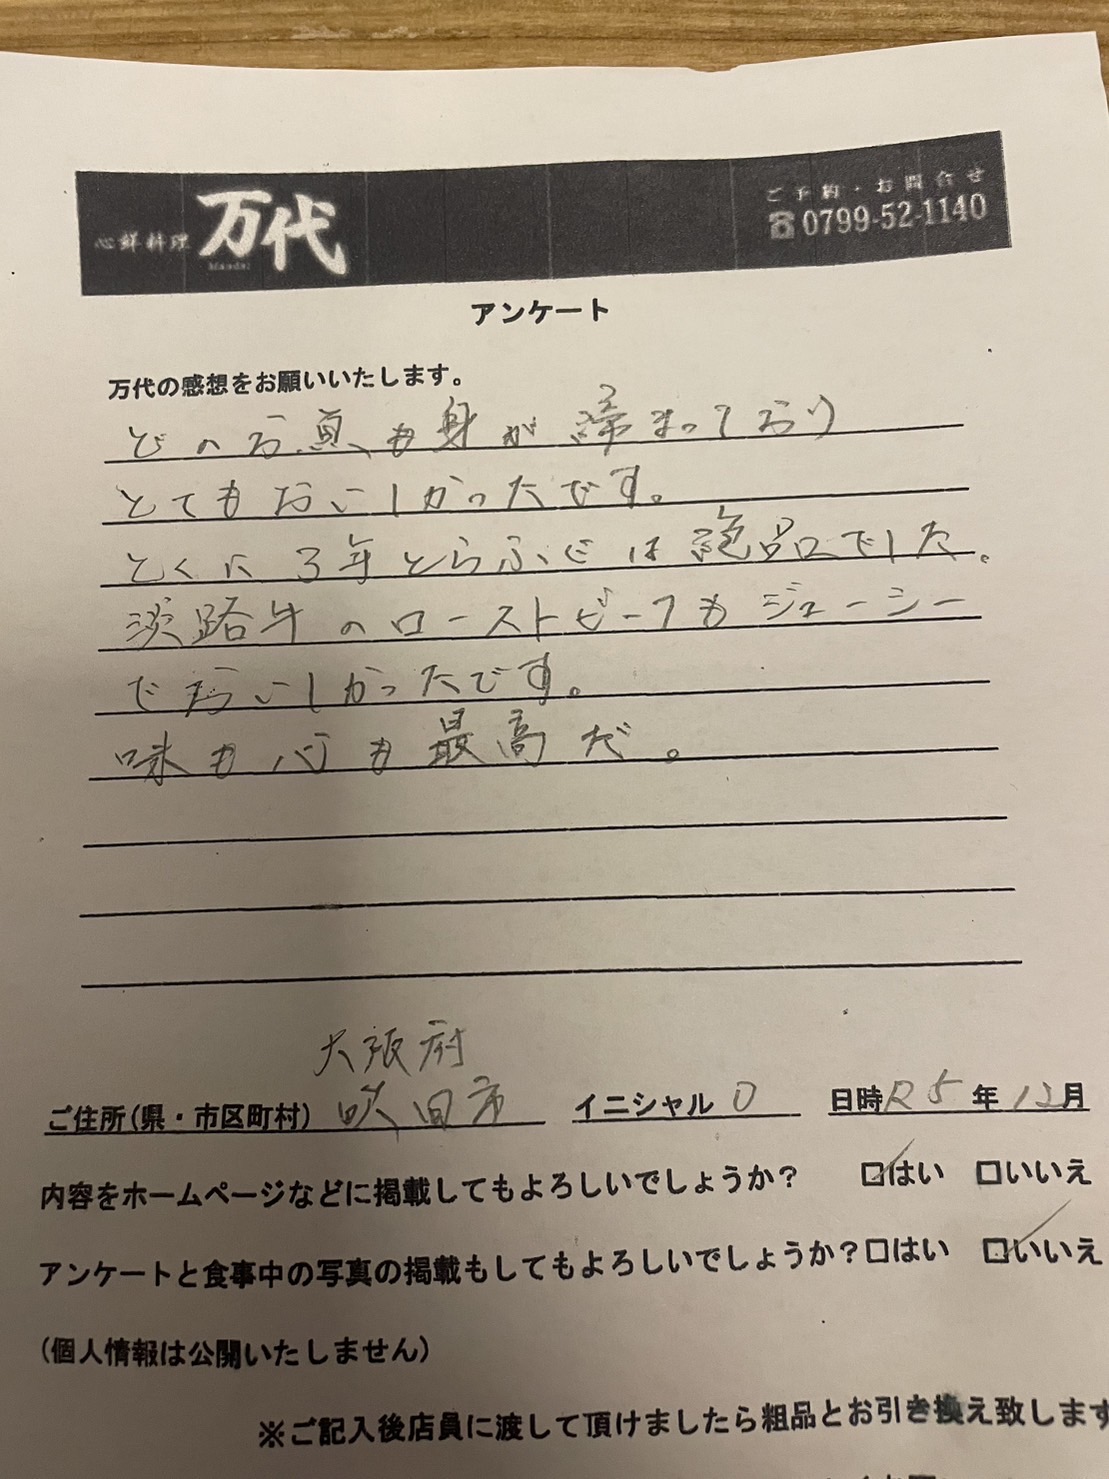 心鮮料理 万代
Mandai
ご予約・お問合せ
☎0799-52-1140
アンケート
万代の感想をお願いいたします。
どのお魚も身が締まっており
とてもおいしかったです。
とくに3年とらふぐは絶品でした。
淡路牛のローストビーフもジューシー
でおいしかったです。
味も心も最高だ。
大阪府
ご住所(県・市区町村) 吹田市 イニシャル O 日時 R5年12月
内容をホームページなどに掲載してもよろしいでしょうか? □はい □いいえ
アンケートと食事中の写真の掲載もしてもよろしいでしょうか?□はい □いいえ
(個人情報は公開いたしません)
※ご記入後店員に渡して頂けましたら粗品とお引き換え致します